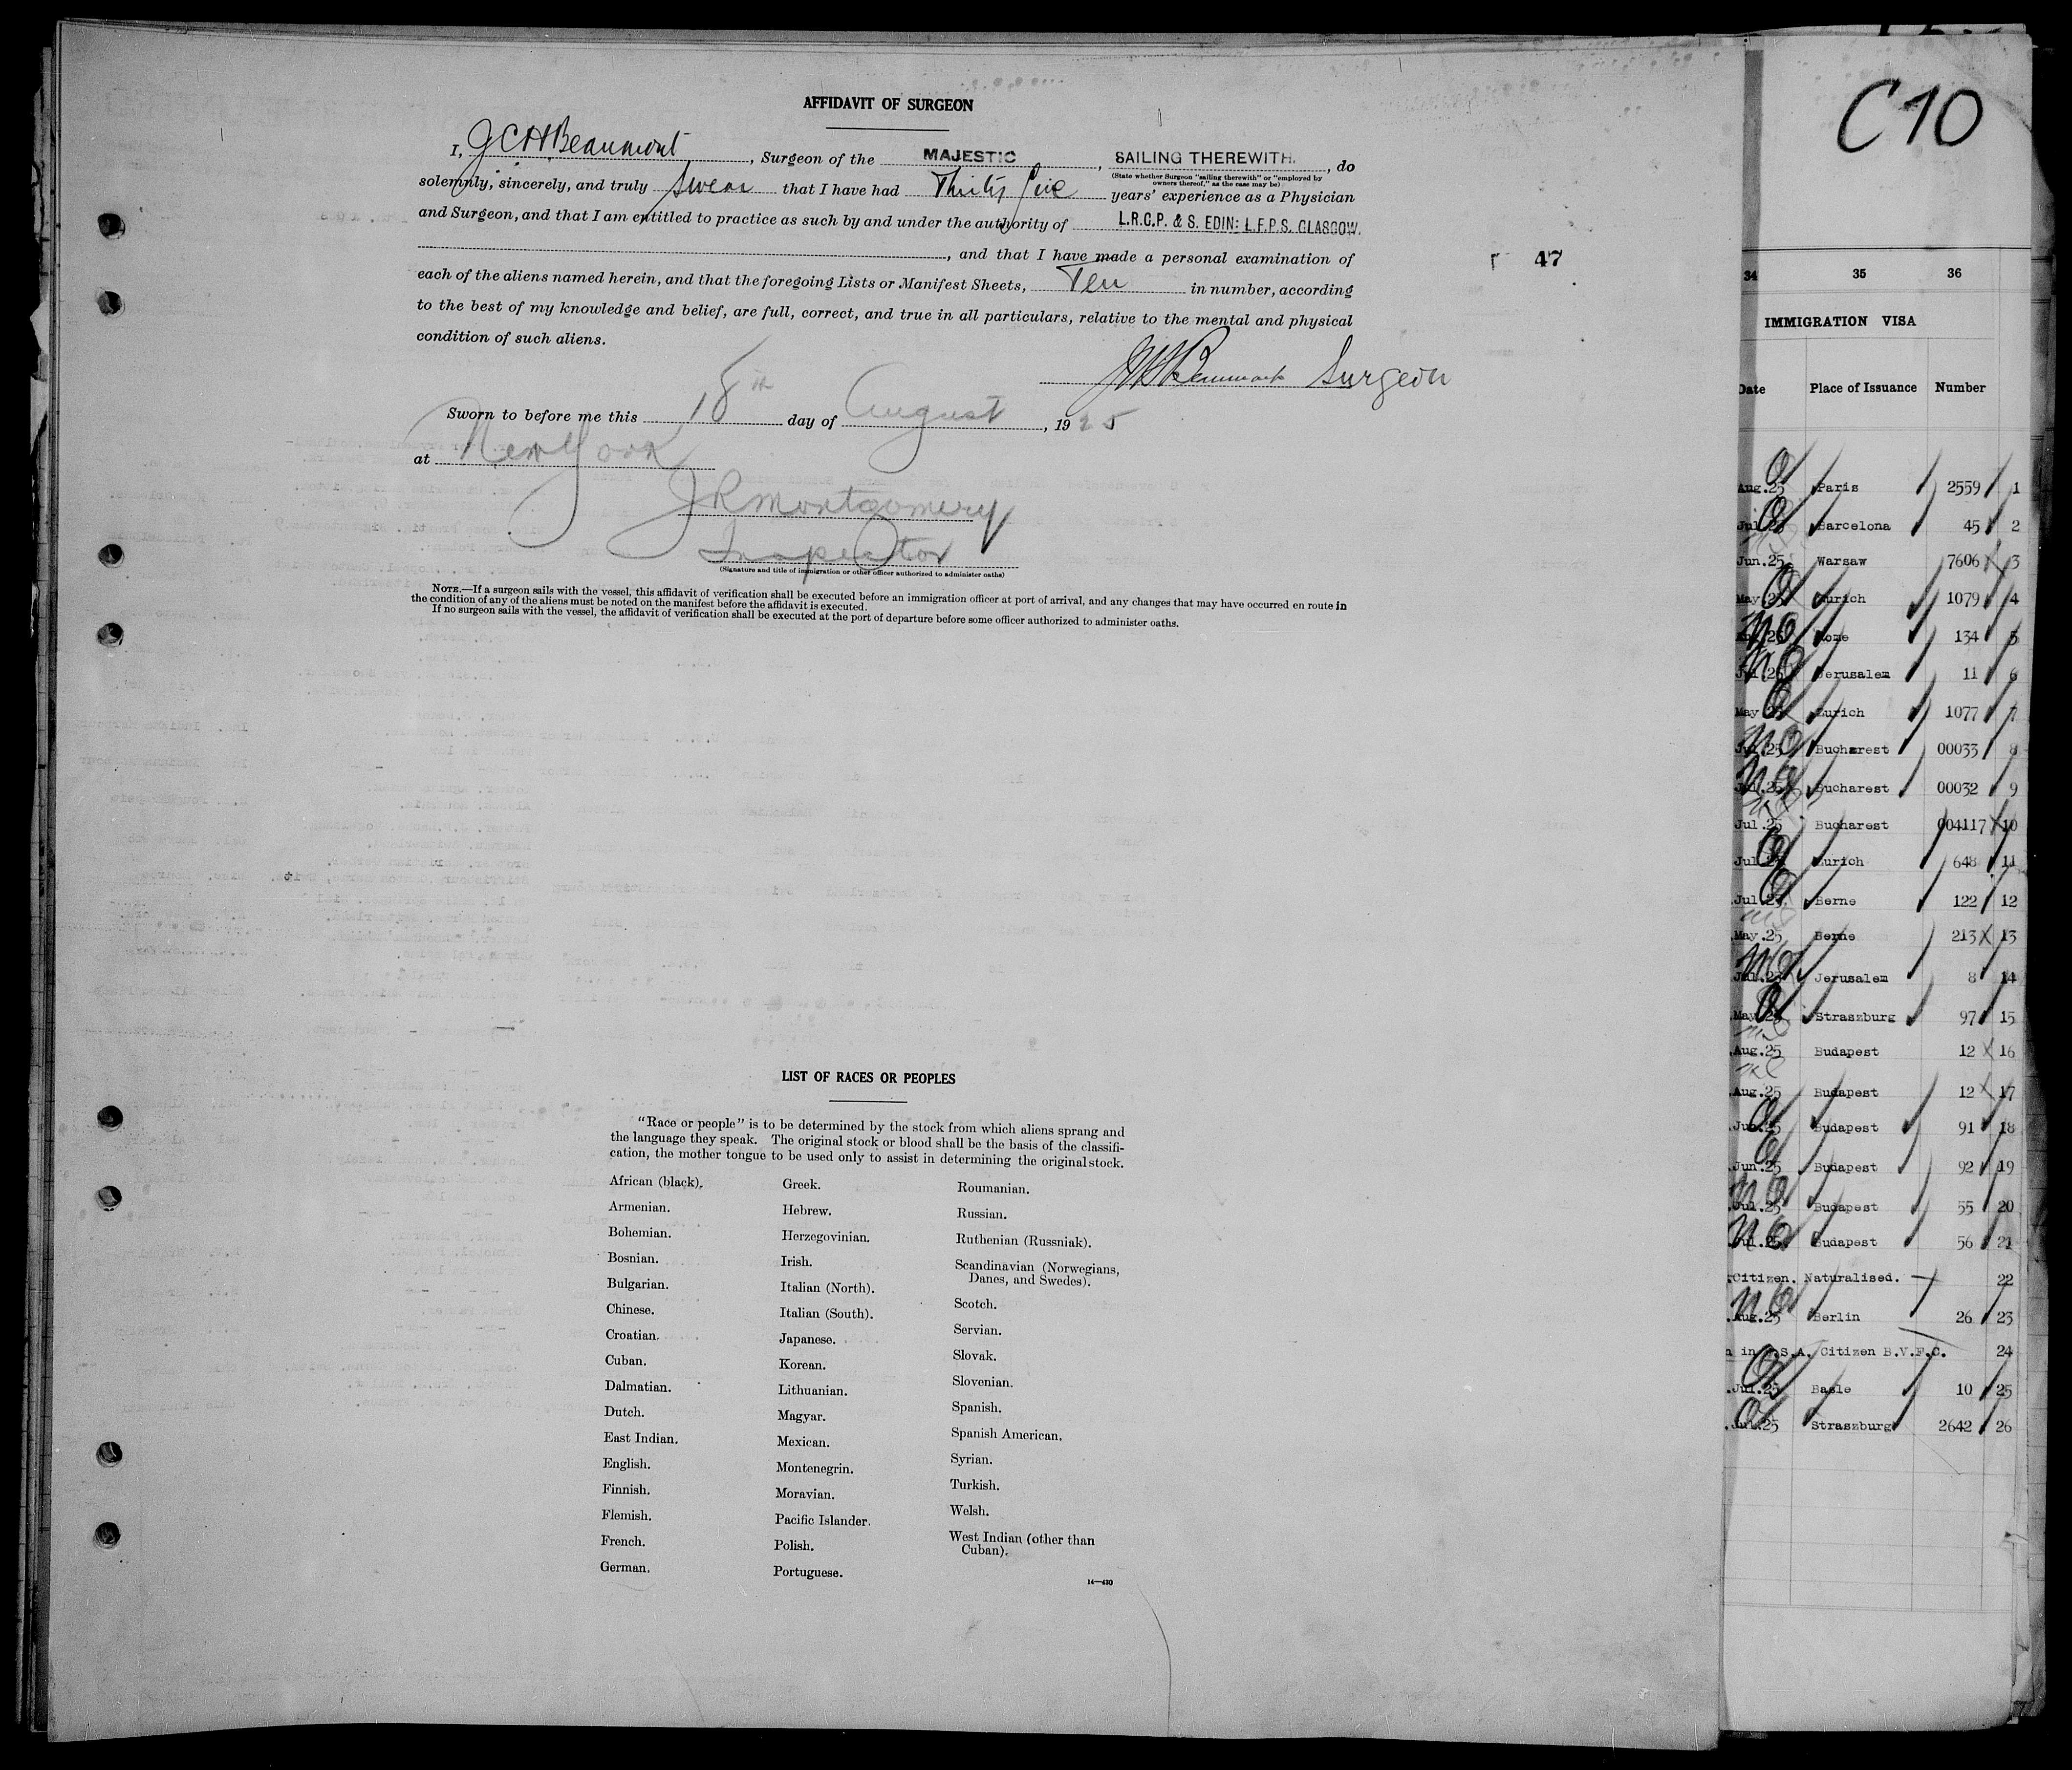 AFFIDAVIT OF SURGEON
I, JCHBeaumont, Surgeon of the MAJESTIC, SAILING THEREWITH., do
(State whether Surgeon "sailing therewith" or "employed by
owners thereof," as the case may be)
solemnly, sincerely, and truly swear that I have had Thirty five years' experience as a Physician
and Surgeon, and that I am entitled to practice as such by and under the authority of L.R.C.P. & S. EDIN: L.F.P.S. GLASGOW.
, and that I have made a personal examination of
each of the aliens named herein, and that the foregoing Lists or Manifest Sheets, Ten in number, according
to the best of my knowledge and belief, are full, correct, and true in all particulars, relative to the mental and physical
condition of such aliens.
47
JCHBeaumont Surgeon
Sworn to before me this 18th day of August, 1925
at New York
JRMontgomery
Inspector
(Signature and title of immigration or other officer authorized to administer oaths)
NOTE.—If a surgeon sails with the vessel, this affidavit of verification shall be executed before an immigration officer at port of arrival, and any changes that may have occurred en route in
the condition of any of the aliens must be noted on the manifest before the affidavit is executed.
If no surgeon sails with the vessel, the affidavit of verification shall be executed at the port of departure before some officer authorized to administer oaths.
LIST OF RACES OR PEOPLES
"Race or people" is to be determined by the stock from which aliens sprang and
the language they speak. The original stock or blood shall be the basis of the classifi-
cation, the mother tongue to be used only to assist in determining the original stock.
African (black).
Armenian.
Bohemian.
Bosnian.
Bulgarian.
Chinese.
Croatian.
Cuban.
Dalmatian.
Dutch.
East Indian.
English.
Finnish.
Flemish.
French.
German.
Greek.
Hebrew.
Herzegovinian.
Irish.
Italian (North).
Italian (South).
Japanese.
Korean.
Lithuanian.
Magyar.
Mexican.
Montenegrin.
Moravian.
Pacific Islander.
Polish.
Portuguese.
Roumanian.
Russian.
Ruthenian (Russniak).
Scandinavian (Norwegians,
Danes, and Swedes).
Scotch.
Servian.
Slovak.
Slovenian.
Spanish.
Spanish American.
Syrian.
Turkish.
Welsh.
West Indian (other than
Cuban).
14—430
C10
34 35 36
IMMIGRATION VISA
Date Place of Issuance Number
Aug.25 Paris 2559 1
Jul.25 Barcelona 45 2
Jun.25 Warsaw 7606 3
May 25 Zurich 1079 4
25 Rome 134 5
Jul.25 Jerusalem 11 6
May 25 Zurich 1077 7
Jul.25 Bucharest 00033 8
Jul.25 Bucharest 00032 9
Jul.25 Bucharest 004117 10
Jul.25 Zurich 648 11
Jul.25 Berne 122 12
May.25 Berne 213 13
Jul.25 Jerusalem 8 14
May 25 Straszburg 97 15
Aug.25 Budapest 12 16
Aug.25 Budapest 12 17
Jun.25 Budapest 91 18
Jun.25 Budapest 92 19
Jul.25 Budapest 55 20
Jul.25 Budapest 56 21
Citizen. Naturalised. 22
Aug.25 Berlin 26 23
in U.S.A. Citizen B.V.F.C. 24
Jul.25 Basle 10 25
Jul.25 Straszburg 2642 26